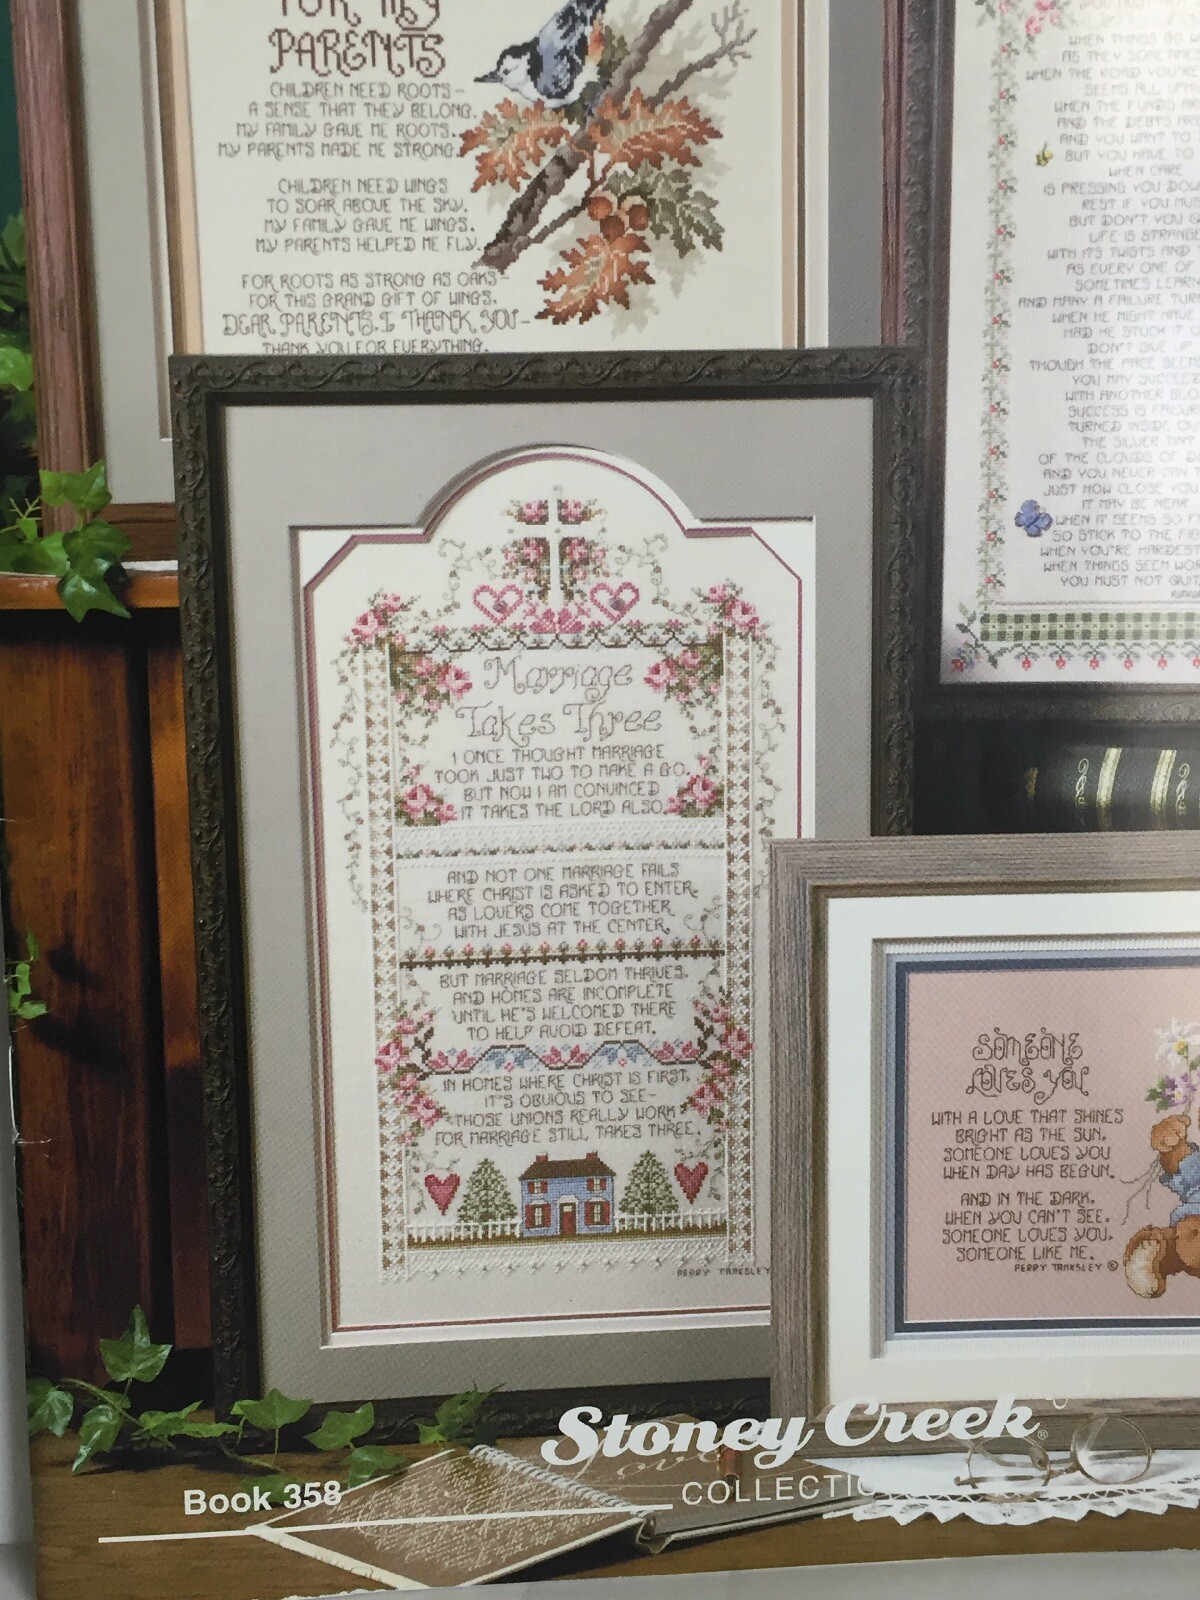 FOR MY
PARENTS
CHILDREN NEED ROOTS-
A SENSE THAT THEY BELONG.
MY FAMILY GAVE ME ROOTS.
MY PARENTS MADE ME STRONG.
CHILDREN NEED WINGS
TO SOAR ABOVE THE SKY.
MY FAMILY GAVE ME WINGS.
MY PARENTS HELPED ME FLY.
FOR ROOTS AS STRONG AS OAKS-
FOR THIS GRAND GIFT OF WINGS,
DEAR PARENTS, I THANK YOU-
THANK YOU FOR EVERYTHING.
WHEN THINGS GO
AS THEY SOME
WHEN THE ROAD YOU'RE
SEEMS ALL
WHEN THE FUNDS
AND THE DEBTS
AND YOU WANT TO
BUT YOU HAVE TO
WHEN CARE
IS PRESSING YOU
REST IF YOU
BUT DON'T YOU
LIFE IS STRANGE
WITH ITS TWISTS AND
AS EVERY ONE OF
SOMETIMES
AND MANY A FAILURE
WHEN HE MIGHT HAVE
HAD HE STUCK IT
DON'T GIVE UP
THOUGH THE PACE
YOU MAY
WITH ANOTHER
SUCCESS IS
TURNED INSIDE
THE SILVER TINT
OF THE CLOUDS OF
AND YOU NEVER CAN
JUST HOW CLOSE YOU
IT MAY BE NEAR
WHEN IT SEEMS SO
SO STICK TO THE
WHEN YOU'RE HARDEST
WHEN THINGS SEEM
YOU MUST NOT
Marriage
Takes Three
I ONCE THOUGHT MARRIAGE
TOOK JUST TWO TO MAKE A GO,
BUT NOW I AM CONVINCED
IT TAKES THE LORD ALSO.
AND NOT ONE MARRIAGE FAILS
WHERE CHRIST IS ASKED TO ENTER,
AS LOVERS COME TOGETHER
WITH JESUS AT THE CENTER.
BUT MARRIAGE SELDOM THRIVES,
AND HOMES ARE INCOMPLETE
UNTIL HE'S WELCOMED THERE
TO HELP AVOID DEFEAT.
IN HOMES WHERE CHRIST IS FIRST,
IT'S OBVIOUS TO SEE-
THOSE UNIONS REALLY WORK
FOR MARRIAGE STILL TAKES THREE.
PERRY TANKSLEY
SOMEONE
LOVES YOU
WITH A LOVE THAT SHINES
BRIGHT AS THE SUN,
SOMEONE LOVES YOU
WHEN DAY HAS BEGUN.
AND IN THE DARK,
WHEN YOU CAN'T SEE,
SOMEONE LOVES YOU,
SOMEONE LIKE ME.
PERRY TANKSLEY ©
Stoney Creek®
COLLECTIO
Book 358